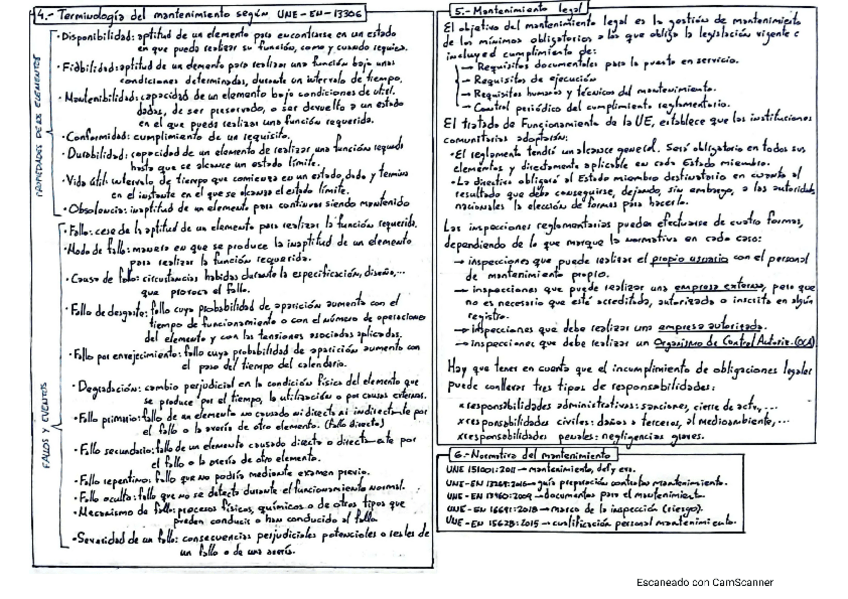 4.- Terminología del mantenimiento según UNE-EN-13306
PROPIEDADES DE LOS ELEMENTOS
· Disponibilidad: aptitud de un elemento para encontrarse en un estado
en que pueda realizar su función, como y cuando requiera.
· Fiabilidad: aptitud de un elemento para realizar una función bajo unas
condiciones determinadas, durante un intervalo de tiempo.
· Mantenibilidad: capacidad de un elemento bajo condiciones de util.
dadas, de ser preservado, o ser devuelto a un estado
en el que pueda realizar una función requerida.
· Conformidad: cumplimiento de un requisito.
· Durabilidad: capacidad de un elemento de realizar una función requerida
hasta que se alcance un estado límite.
· Vida útil: intervalo de tiempo que comienza en un estado dado y termina
en el instante en el que se alcanza el estado límite.
· Obsolencia: inaptitud de un elemento para continuar siendo mantenido
FALLOS Y EVENTOS
· Fallo: cese de la aptitud de un elemento para realizar la función requerida.
· Modo de fallo: manera en que se produce la inaptitud de un elemento
para realizar la función requerida.
· Causa de fallo: circunstancias habidas durante la especificación, diseño,...
que provoca el fallo.
· Fallo de desgaste: fallo cuya probabilidad de aparición aumenta con el
tiempo de funcionamiento o con el número de operaciones
del elemento y con las tensiones asociadas aplicadas.
· Fallo por envejecimiento: fallo cuya probabilidad de aparición aumenta con
el paso del tiempo del calendario.
· Degradación: cambio perjudicial en la condición física del elemento que
se produce por el tiempo, la utilización o por causas externas.
· Fallo primario: fallo de un elemento no causado ni directa ni indirectamente por
el fallo o la avería de otro elemento. (Fallo directo)
· Fallo secundario: fallo de un elemento causado directa o directamente por
el fallo o la avería de otro elemento.
· Fallo repentino: fallo que no podría mediante examen previo.
· Fallo oculto: fallo que no se detecta durante el funcionamiento normal.
· Mecanismo de fallo: procesos físicos, químicos o de otros tipos que
pueden conducir o han conducido al fallo.
· Severidad de un fallo: consecuencias perjudiciales potenciales o reales de
un fallo o de una avería.
5.- Mantenimiento legal
El objetivo del mantenimiento legal es la gestión de mantenimiento
de los mínimos obligatorios a los que obliga la legislación vigente e
incluyed cumplimiento de:
→ Requisitos documentales para la puesta en servicio.
→ Requisitos de ejecución
→ Requisitos humanos y técnicos del mantenimiento.
→ Control periódico del cumplimiento reglamentario.
El tratado de Funcionamiento de la UE, establece que las instituciones
comunitarias adoptarán:
· El reglamento tendrá un alcance general. Será obligatorio en todos sus
elementos y directamente aplicable en cada Estado miembro.
· La directiva obligará al Estado miembro destinatario en cuanto al
resultado que deba conseguirse, dejando, sin embargo, a las autoridades
nacionales la elección de formas para hacerlo.
Las inspecciones reglamentarias pueden efectuarse de cuatro formas,
dependiendo de lo que marque la normativa en cada caso:
→ inspecciones que puede realizar el propio usuario con el personal
de mantenimiento propio.
→ inspecciones que puede realizar una empresa externa, pero que
no es necesario que esté acreditada, autorizada o inscrita en algún
registro.
→ inspecciones que debe realizar una empresa autorizada.
→ inspecciones que debe realizar un Organismo de Control Autoriz. (OCA)
Hay que tener en cuenta que el incumplimiento de obligaciones legales
puede conllevar tres tipos de responsabilidades:
x responsabilidades administrativas: sanciones, cierre de activ,...
x responsabilidades civiles: daños a terceros, al medioambiente,...
x responsabilidades penales: negligencias graves.
6.- Normativa del mantenimiento
UNE 151001:2011 → mantenimiento, def y eva.
UNE-EN 13269:2016 → guía preparación contratos mantenimiento.
UNE-EN 13460:2009 → documentos para el mantenimiento.
UNE-EN 16991:2018 → marco de la inspección (riesgo).
UNE-EN 15628:2015 → cualificación personal mantenimiento.
Escaneado con CamScanner